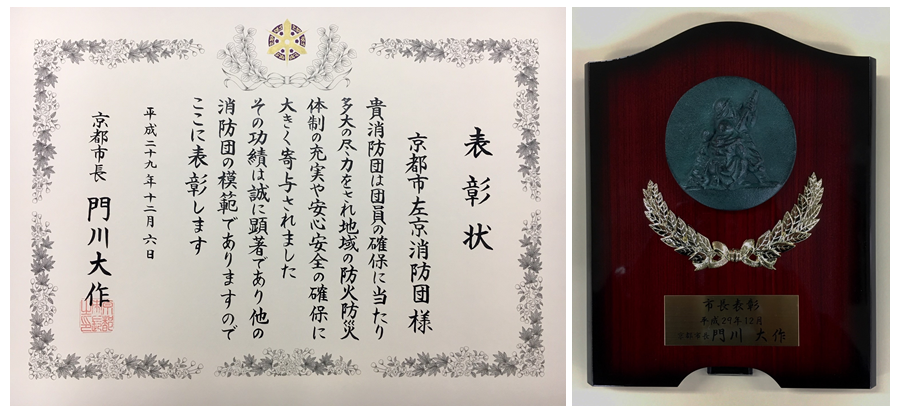 表彰状
京都市左京消防団様
貴消防団は団員の確保に当たり
多大の尽力をされ地域の防火防災
体制の充実や安心安全の確保に
大きく寄与されました
その功績は誠に顕著であり他の
消防団の模範でありますので
ここに表彰します
平成二十九年十二月六日
京都市長 門川大作
市長表彰
平成29年12月
京都市長 門川大作